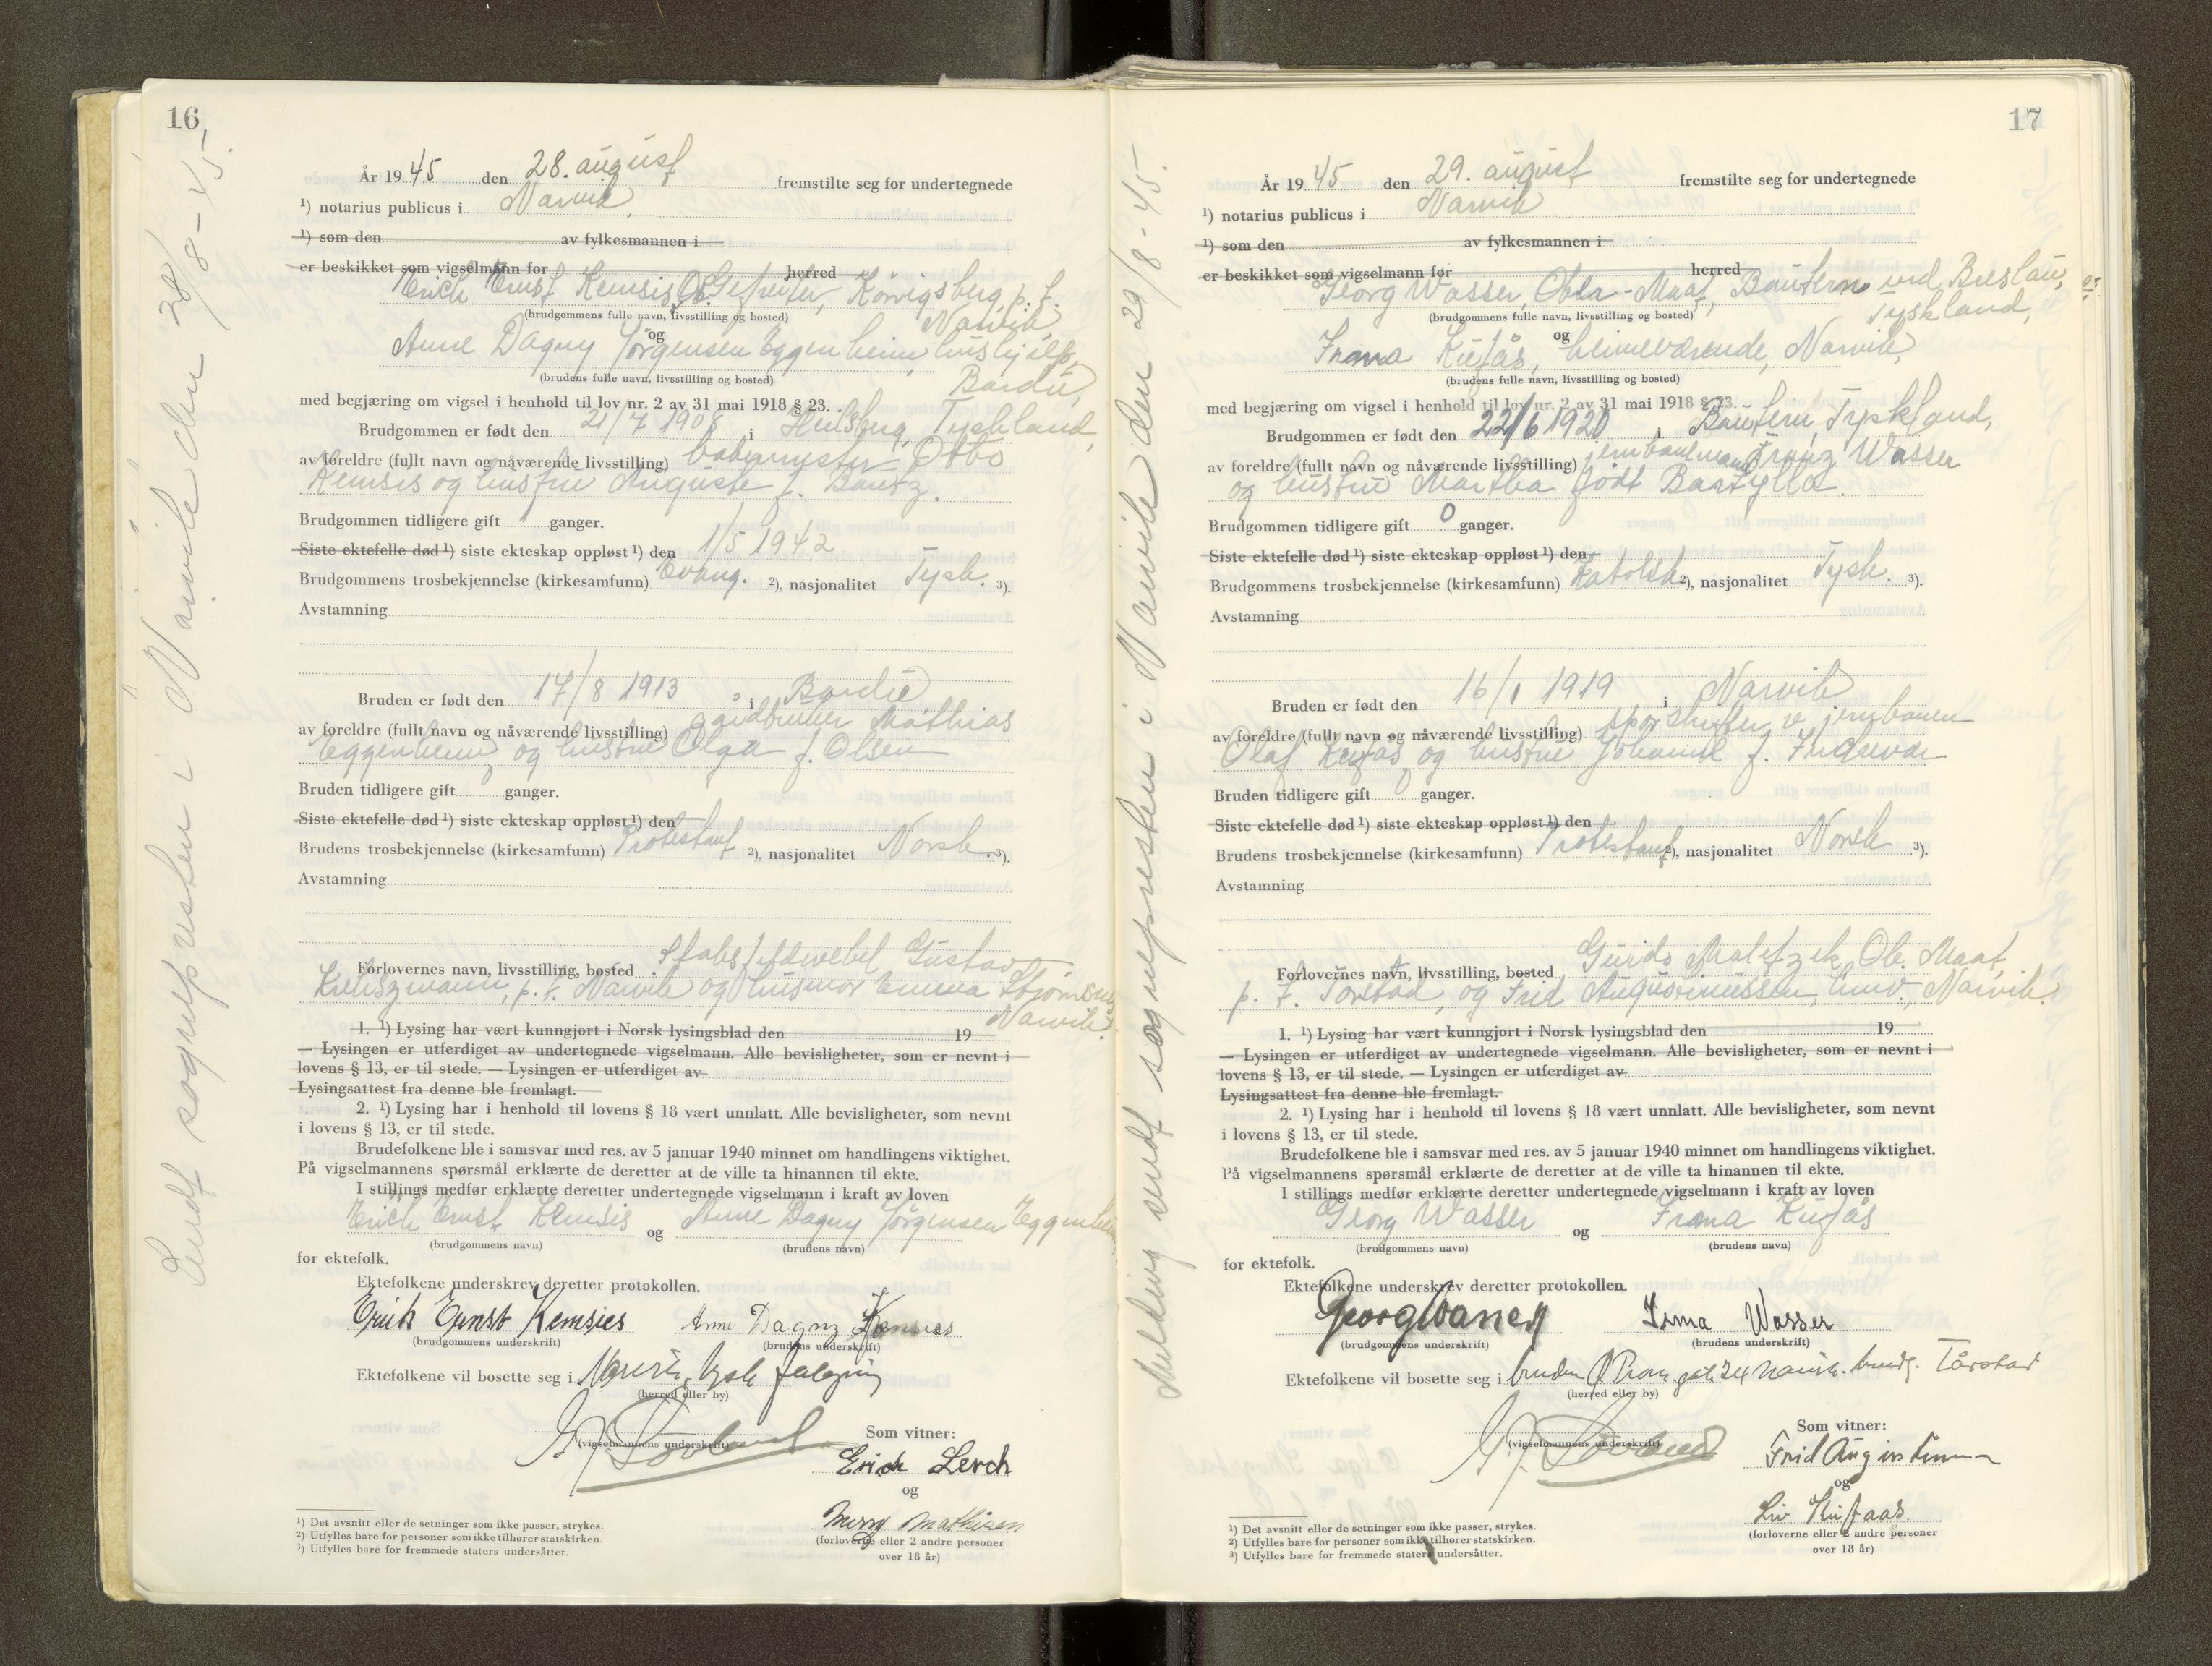 16
Sendt sognepresten i Narvik den 28/8-45.
År 1945 den 28. august fremstilte seg for undertegnede
¹) notarius publicus i Narvik,
¹) som den av fylkesmannen i
er beskikket som vigselmann for herred
Erich Ernst Kemsis, Ob. Gefreiter, Königsberg p. t.
(brudgommens fulle navn, livsstilling og bosted)
Narvik,
og
Anne Dagny Jørgensen Eggenheim, hushjelp,
(brudens fulle navn, livsstilling og bosted)
Bardu,
med begjæring om vigsel i henhold til lov nr. 2 av 31 mai 1918 § 23.
Brudgommen er født den 21/7 1908 i Heilsberg, Tyskland,
av foreldre (fullt navn og nåværende livsstilling) Otto
Kemsis og hustru Auguste f.
Brudgommen tidligere gift ganger.
Siste ektefelle død ¹) siste ekteskap oppløst ¹) den 1/5 1942
Brudgommens trosbekjennelse (kirkesamfunn) Evang. ²), nasjonalitet Tysk. ³).
Avstamning
Bruden er født den 17/8 1913 i Bardu
av foreldre (fullt navn og nåværende livsstilling) gårdbruker Mathias
Eggenheim og hustru Olga f. Olsen
Bruden tidligere gift ganger.
Siste ektefelle død ¹) siste ekteskap oppløst ¹) den
Brudens trosbekjennelse (kirkesamfunn) Protestant ²), nasjonalitet Norsk. ³).
Avstamning
Forlovernes navn, livsstilling, bosted Stabsfeldwebel Gustav
p. t. Narvik og husmor Emma
Narvik.
1. ¹) Lysing har vært kunngjort i Norsk lysingsblad den 19
— Lysingen er utferdiget av undertegnede vigselmann. Alle bevisligheter, som er nevnt i
lovens § 13, er til stede. — Lysingen er utferdiget av
Lysingsattest fra denne ble fremlagt.
2. ¹) Lysing har i henhold til lovens § 18 vært unnlatt. Alle bevisligheter, som nevnt
i lovens § 13, er til stede.
Brudefolkene ble i samsvar med res. av 5 januar 1940 minnet om handlingens viktighet.
På vigselmannens spørsmål erklærte de deretter at de ville ta hinannen til ekte.
I stillings medfør erklærte deretter undertegnede vigselmann i kraft av loven
Erich Ernst Kemsis og Anne Dagny Jørgensen Eggenheim
(brudgommens navn) (brudens navn)
for ektefolk.
Ektefolkene underskrev deretter protokollen.
Erich Ernst Kemsies Anne Dagny Kemsies
(brudgommens underskrift) (brudens underskrift)
Ektefolkene vil bosette seg i Narvik, tysk
(herred eller by)
(vigselmannens underskrift)
Som vitner:
Erich Lerch
og
Merry Mathisen
(forloverne eller 2 andre personer
over 18 år)
¹) Det avsnitt eller de setninger som ikke passer, strykes.
²) Utfylles bare for personer som ikke tilhører statskirken.
³) Utfylles bare for fremmede staters undersåtter.
17
Melding sendt sognepresten i Narvik den 29/8-45.
År 1945 den 29. august fremstilte seg for undertegnede
¹) notarius publicus i Narvik
¹) som den av fylkesmannen i
er beskikket som vigselmann for herred
Georg Wasser, Ober-Maat, Bautern ved Breslau,
(brudgommens fulle navn, livsstilling og bosted)
Tyskland,
og
Irma Kufås, heimeværende, Narvik,
(brudens fulle navn, livsstilling og bosted)
med begjæring om vigsel i henhold til lov nr. 2 av 31 mai 1918 § 23.
Brudgommen er født den 22/6 1920 i Bautern, Tyskland,
av foreldre (fullt navn og nåværende livsstilling) jernbanemann Franz Wasser
og hustru Martha født Bastylla.
Brudgommen tidligere gift 0 ganger.
Siste ektefelle død ¹) siste ekteskap oppløst ¹) den
Brudgommens trosbekjennelse (kirkesamfunn) Katolsk ²), nasjonalitet Tysk. ³).
Avstamning
Bruden er født den 16/1 1919 i Narvik
av foreldre (fullt navn og nåværende livsstilling) sporskifter v. jernbanen
Olaf Kufås og hustru f.
Bruden tidligere gift ganger.
Siste ektefelle død ¹) siste ekteskap oppløst ¹) den
Brudens trosbekjennelse (kirkesamfunn) Protestant ²), nasjonalitet Norsk ³).
Avstamning
Forlovernes navn, livsstilling, bosted Guido Maletzek, Ob. Maat,
p. t. Torstad, og Frid Augustinussen, Narvik.
1. ¹) Lysing har vært kunngjort i Norsk lysingsblad den 19
— Lysingen er utferdiget av undertegnede vigselmann. Alle bevisligheter, som er nevnt i
lovens § 13, er til stede. — Lysingen er utferdiget av
Lysingsattest fra denne ble fremlagt.
2. ¹) Lysing har i henhold til lovens § 18 vært unnlatt. Alle bevisligheter, som nevnt
i lovens § 13, er til stede.
Brudefolkene ble i samsvar med res. av 5 januar 1940 minnet om handlingens viktighet.
På vigselmannens spørsmål erklærte de deretter at de ville ta hinannen til ekte.
I stillings medfør erklærte deretter undertegnede vigselmann i kraft av loven
Georg Wasser og Irma Kufås
(brudgommens navn) (brudens navn)
for ektefolk.
Ektefolkene underskrev deretter protokollen.
Georg Wasser Irma Wasser
(brudgommens underskrift) (brudens underskrift)
Ektefolkene vil bosette seg i bruden gate 24 Narvik. brudg. Tårstad
(herred eller by)
(vigselmannens underskrift)
Som vitner:
Frid Augustinussen
og
Liv Kufaas.
(forloverne eller 2 andre personer
over 18 år)
¹) Det avsnitt eller de setninger som ikke passer, strykes.
²) Utfylles bare for personer som ikke tilhører statskirken.
³) Utfylles bare for fremmede staters undersåtter.